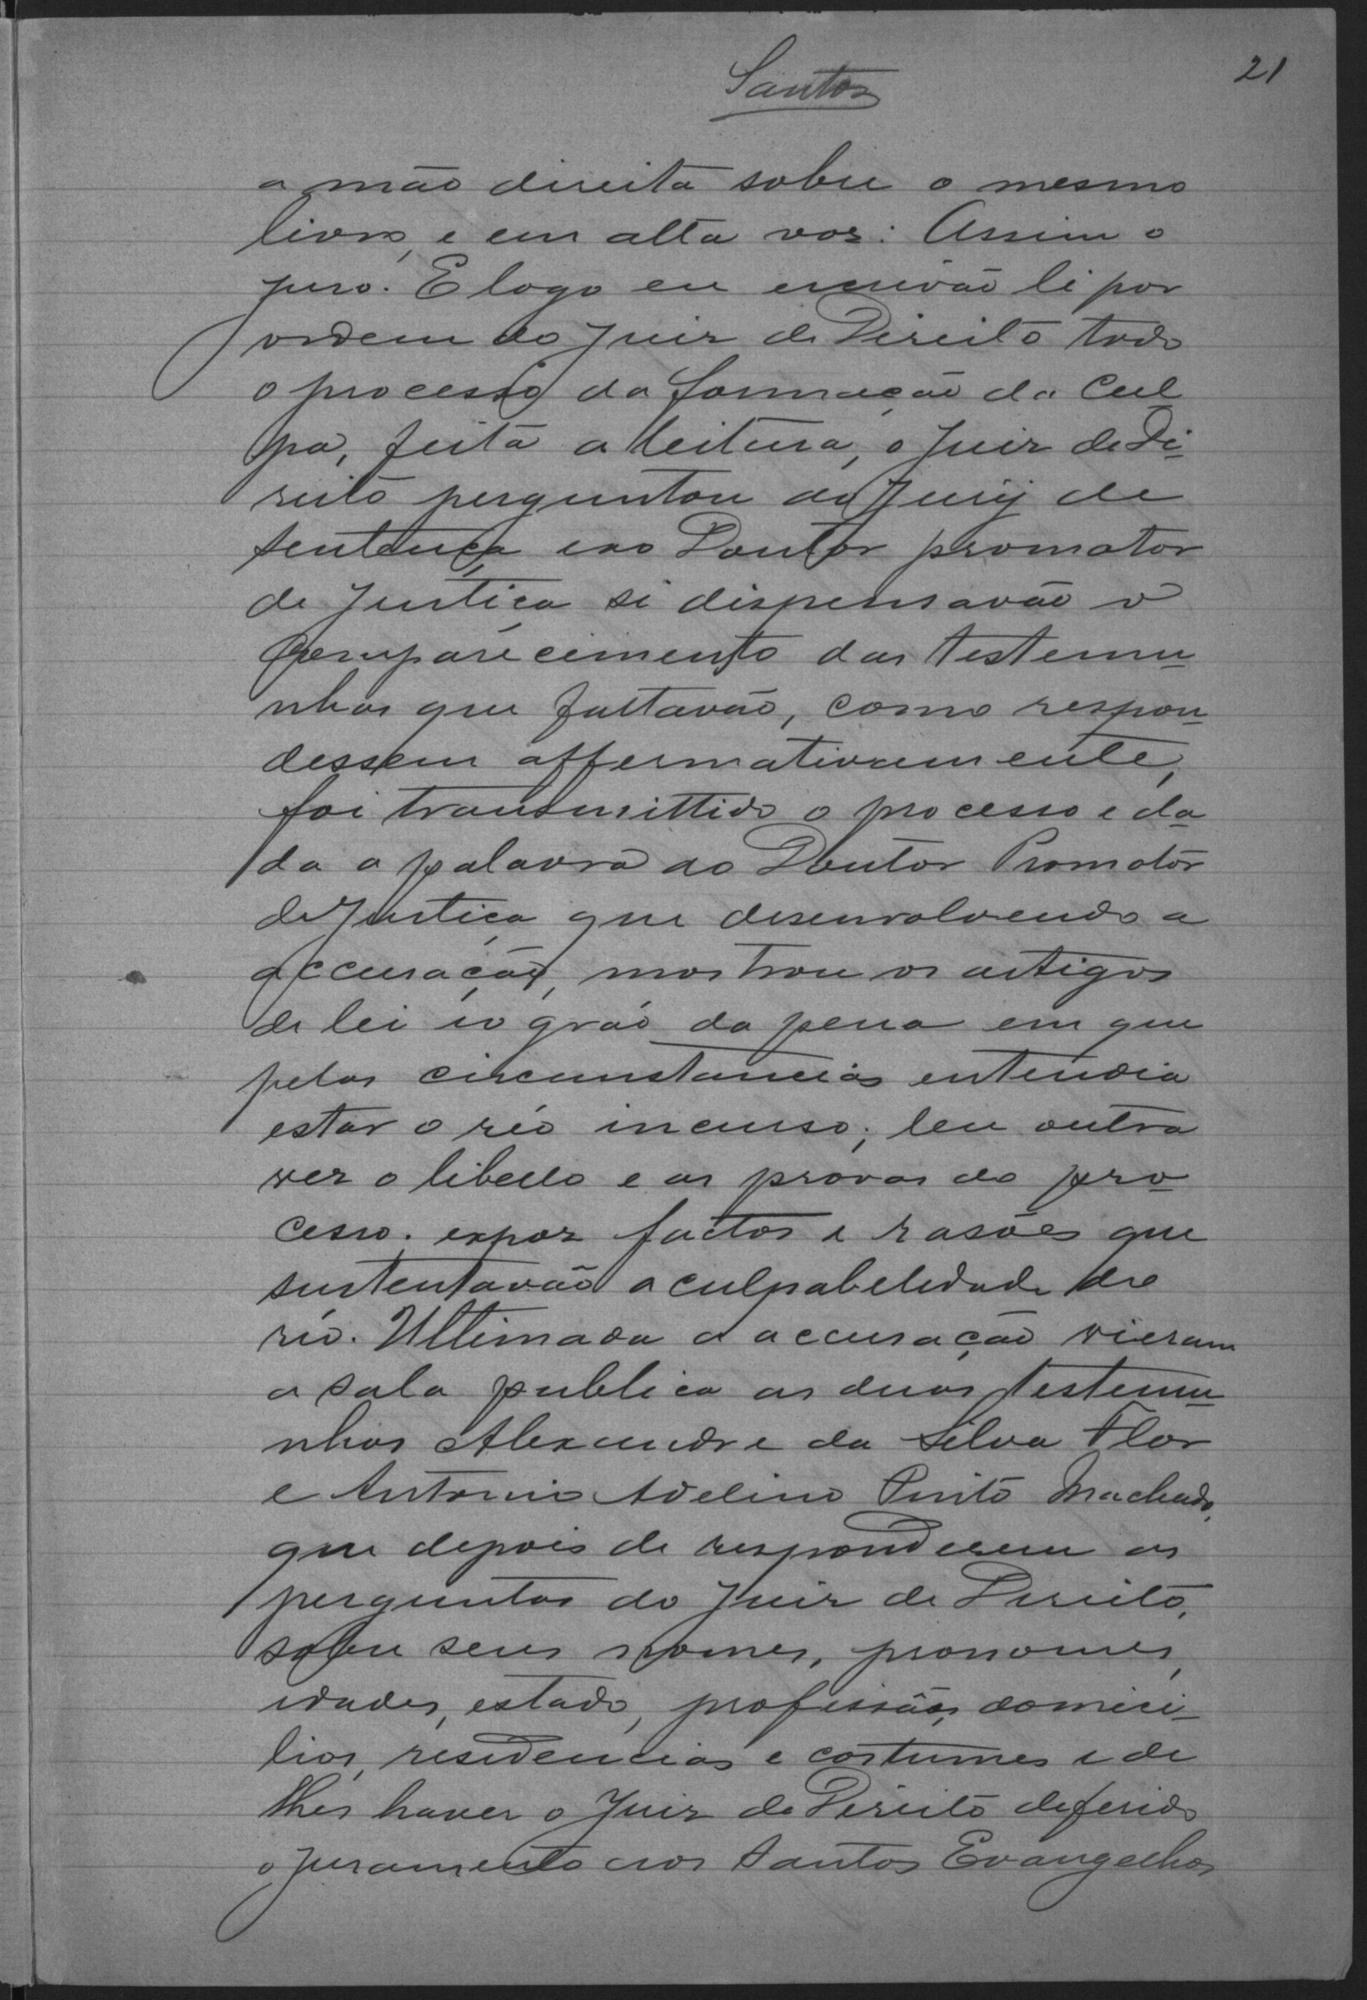 21
Santos
a mão direita sobre o mesmo
livro, e em alta vos: Assim o
juro. E logo eu escrivão li por
ordem do Juiz de Direito todo
o processo da formação da Cul
pa, feita a leitura, o Juiz de Di-
reito perguntou ao Jury de
sentença e ao Doutor promotor
de Justiça si dispensavão o
Comparecimento das testemu-
nhas que faltavão, como respon-
dessem affermativamente,
foi transmittido o processo e da-
da a palavra ao Doutor Promotor
de Justiça que desenvolvendo a
accusação, mostrou os artigos
de lei eo gráo da pena em que
pelas circunstancias entendia
estar o réo incurso; leu outra
vez o libello e as provas do pro-
cesso. expoz factos e rasões que
sustentavão a culpabelidade do
réo. Ultimada a accusação vieram
a sala publica as duas testemu-
nhas Alexandre da Silva Flor
e Antonio Adelino Pinto Machado,
que depois de responderem as
perguntas do Juiz de Direito,
sobre seus nomes, pronomes,
idades, estado, profissão, domici-
lios, residencias e costumes e de
lhes haver o Juiz de Direito deferido
o juramento aos Santos Evangelhos